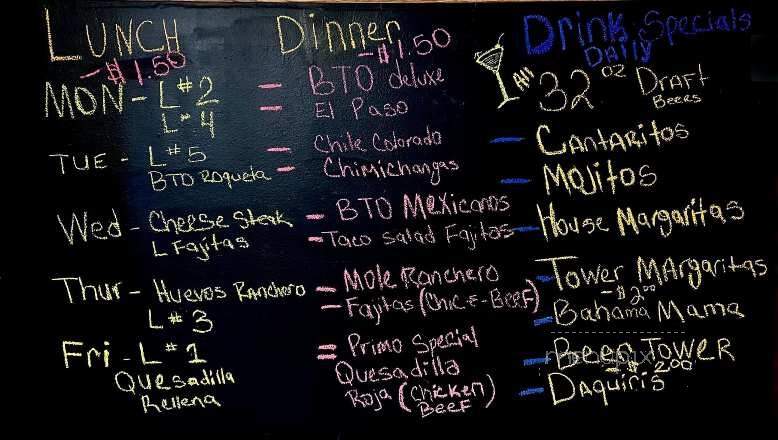 Lunch
-$1.50
MON - L#2
L#4
TUE - L#5
BTO Roqueta
Wed - Cheese Steak
L Fajitas
Thur - Huevos Ranchero
L#3
Fri - L#1
Quesadilla
Rellena
Dinner
-$1.50
- BTO deluxe
- El Paso
- Chile Colorado
- Chimichangas
- BTO Mexicanos
- Taco Salad Fajitas
- Mole Ranchero
- Fajitas (Chic-&-Beef)
= Primo Special
Quesadilla
Roja (Chicken)
Beef
Drink Specials
Daily
All 32 oz Draft
Beers
- Cantaritos
- Mojitos
- House Margaritas
- Tower Margaritas
-$2.00
- Bahama Mama
- Beer Tower
-$2.00
- Daquiris